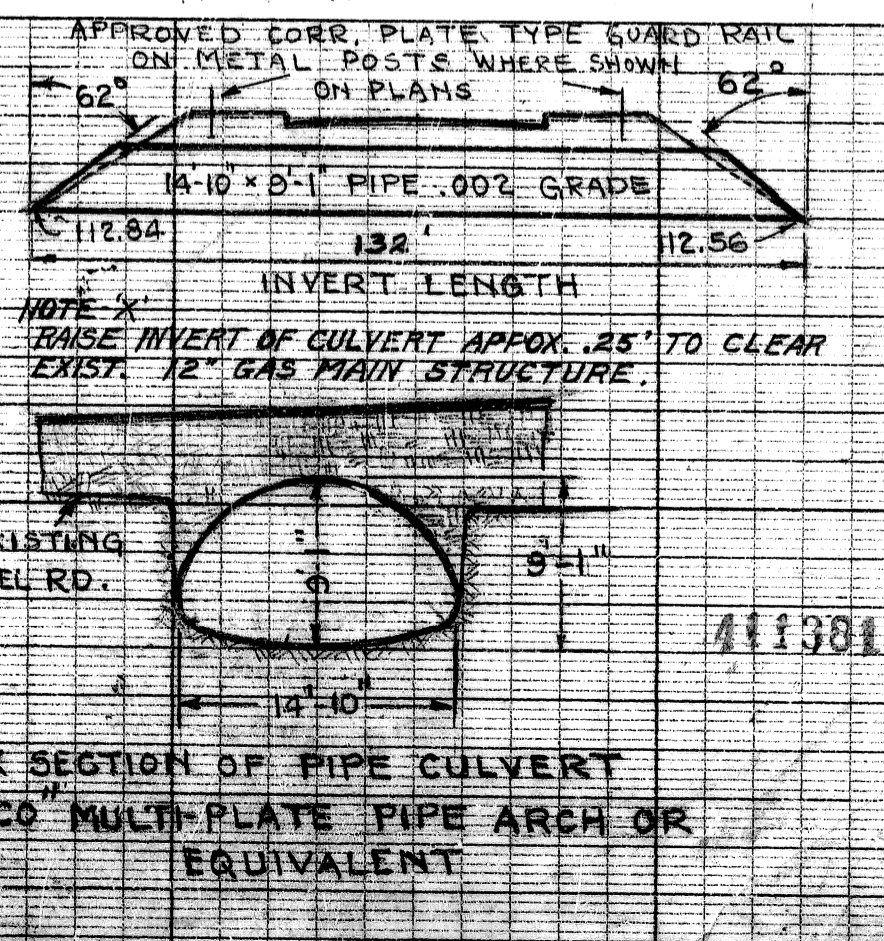 APPROVED CORR. PLATE TYPE GUARD RAIL
ON METAL POSTS WHERE SHOWN
ON PLANS
62°
62°
14'-10" x 9'-1" PIPE .002 GRADE
112.84
132'
112.56
INVERT LENGTH
NOTE 'X'
RAISE INVERT OF CULVERT APPOX. .25' TO CLEAR
EXIST. 12" GAS MAIN STRUCTURE.
ISTING
EL RD.
9'-1"
9'-1"
411381
14'-10"
SECTION OF PIPE CULVERT
CO" MULTI-PLATE PIPE ARCH OR
EQUIVALENT